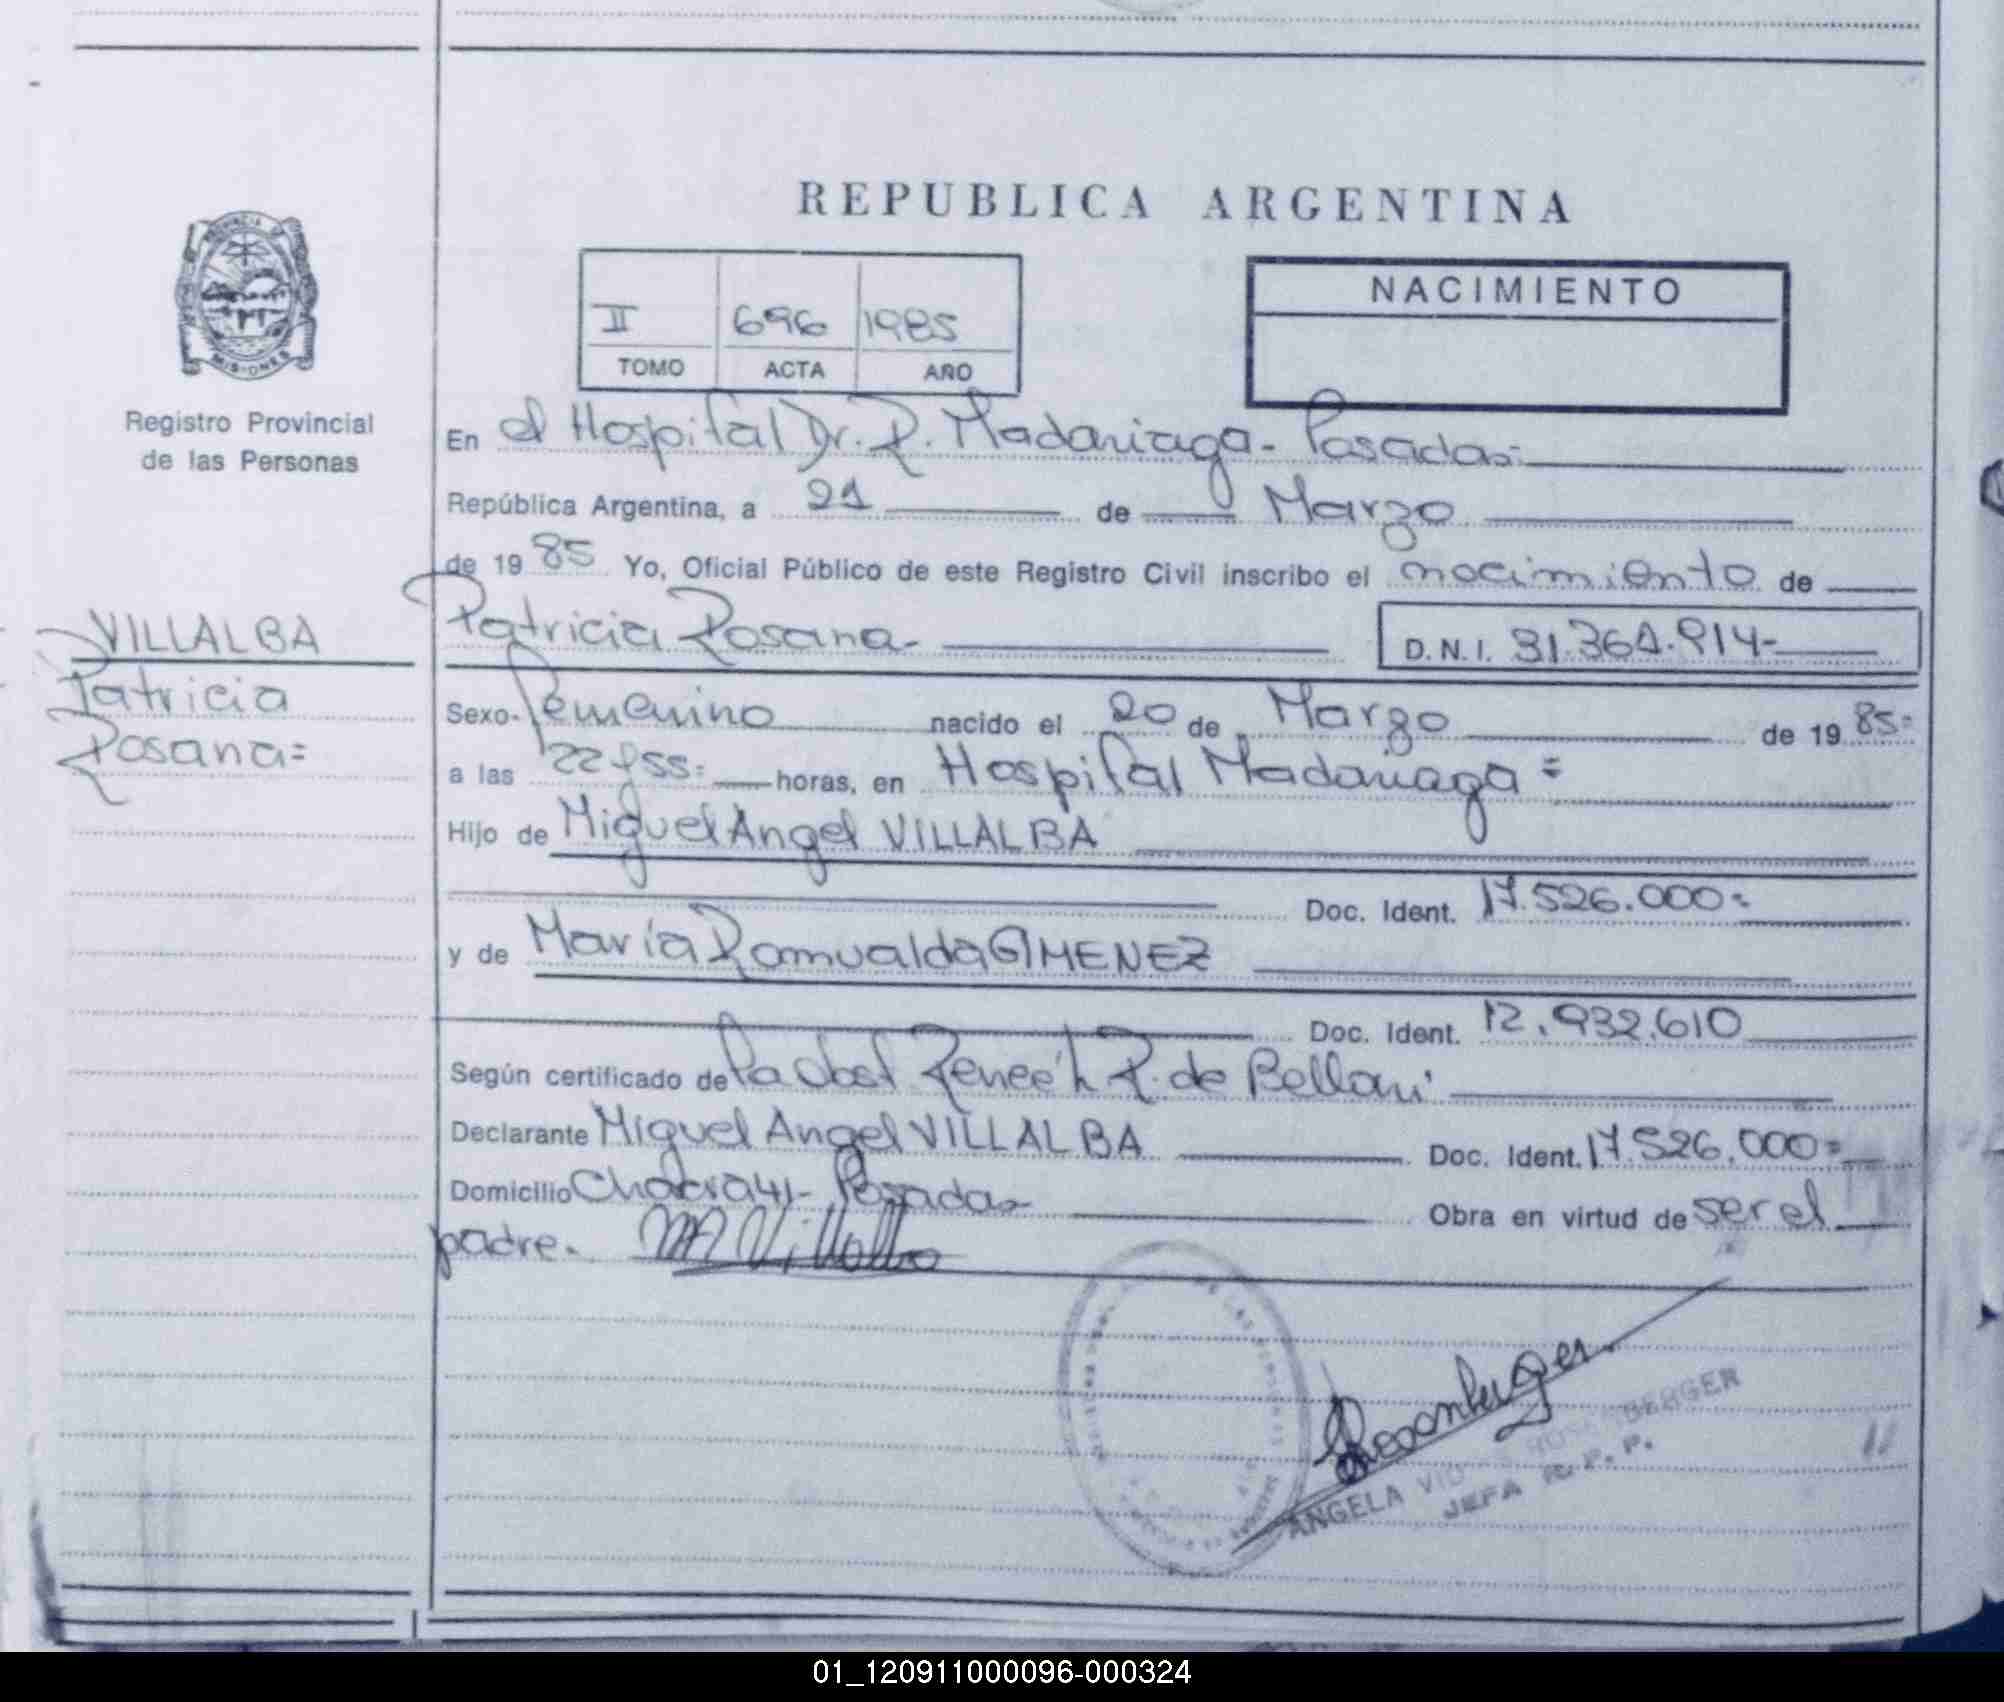 REPUBLICA ARGENTINA
PROVINCIA DE
MISIONES
Registro Provincial
de las Personas
II 696 1985
TOMO ACTA AÑO
NACIMIENTO
En el Hospital Dr. R. Madariaga - Posadas
República Argentina, a 21 de Marzo
de 1985 Yo, Oficial Público de este Registro Civil inscribo el nacimiento de
VILLALBA
Patricia
Rosana=
Patricia Rosana- D.N.I. 31.361.914-
Sexo- Femenino nacido el 20 de Marzo de 1985=
a las 22 y 55= horas, en Hospital Madariaga=
Hijo de Miguel Angel VILLALBA
Doc. Ident. 17.526.000=
y de María Romualda GIMENEZ
Doc. Ident. 12.932.610
Según certificado de Renée R. de
Declarante Miguel Angel VILLALBA Doc. Ident. 17.526.000=
Domicilio Chacra 41- Posadas Obra en virtud de ser el
padre. MA Villalba
ANGELA ROSENBERGER
JEFA R. P. P.
01_120911000096-000324